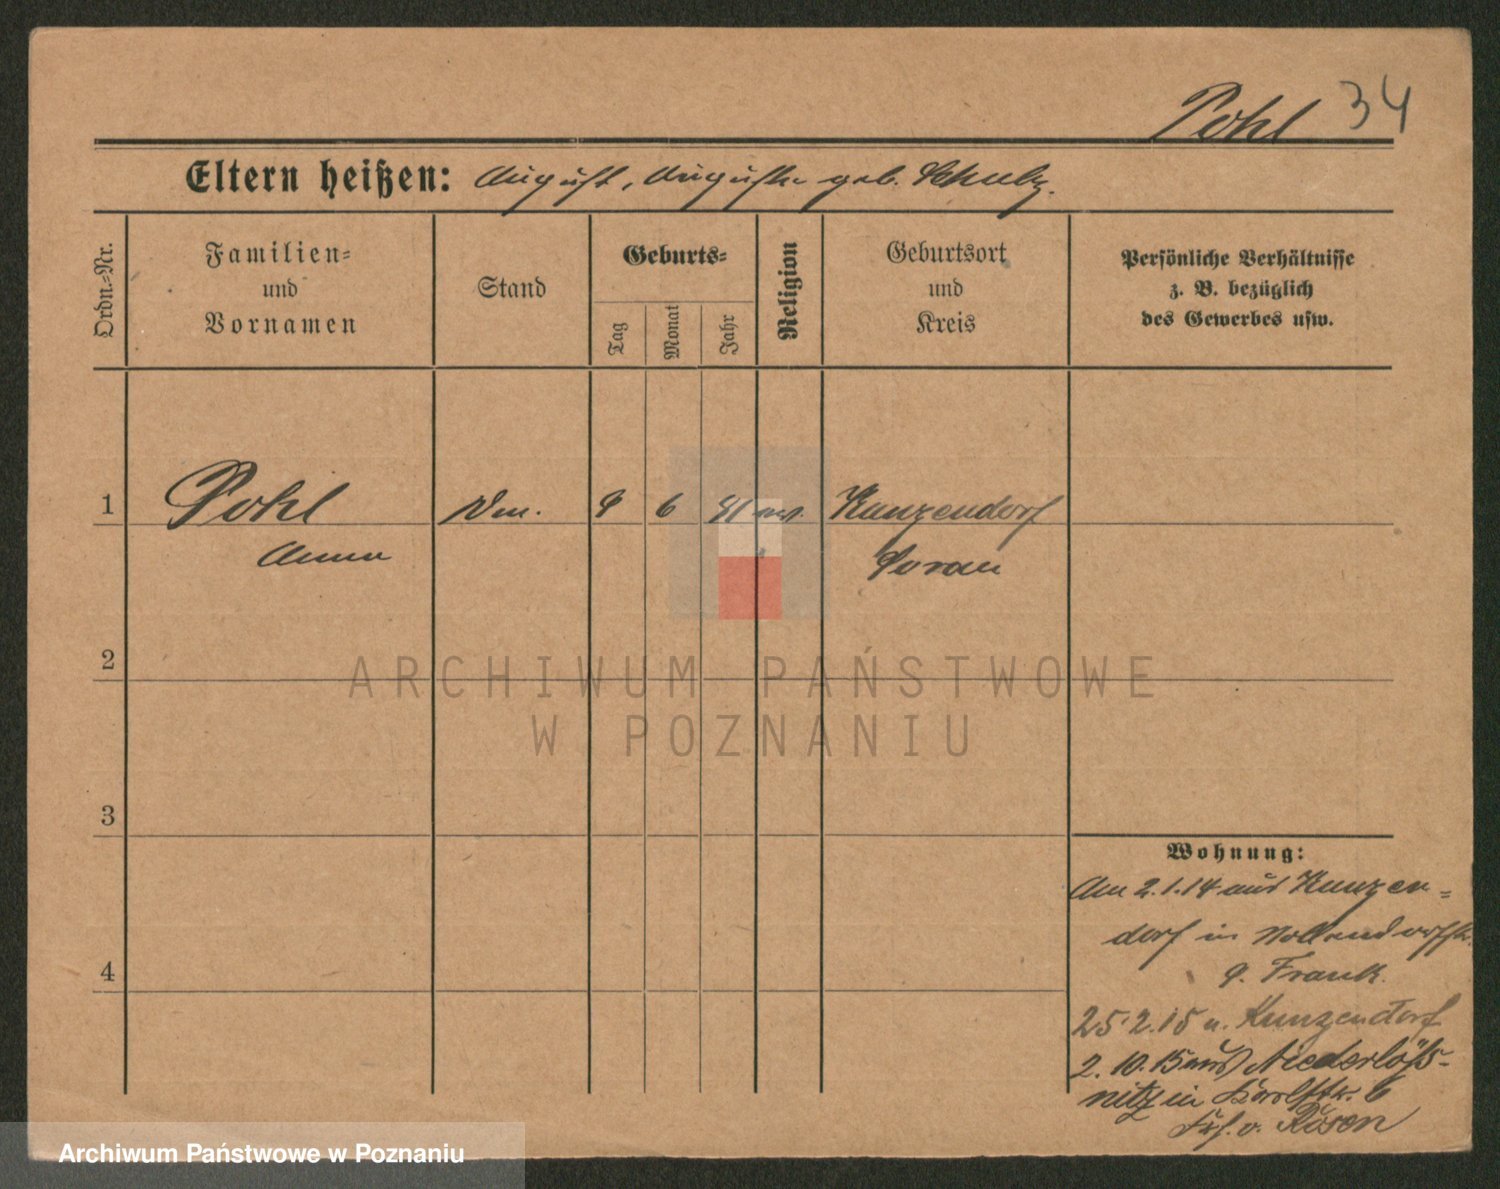 Pohl 34
Eltern heißen: August, Auguste geb. Schulz.
Ordn.-Nr.
Familien-
und
Vornamen
Stand
Geburts-
Tag
Monat
Jahr
Religion
Geburtsort
und
Kreis
Persönliche Verhältnisse
z. B. bezüglich
des Gewerbes usw.
1 Pohl 9 6 Kunzendorf
Anna Sorau
2
3
4
ARCHIWUM PAŃSTWOWE
W POZNANIU
Wohnung:
Am 2.1.14 aus Kunzen-
dorf in Nollendorfstr.
9. Frank.
25.2.15 n. Kunzendorf
2.10.15 aus Niederlöß-
nitz in 6
v. Rosen
Archiwum Państwowe w Poznaniu